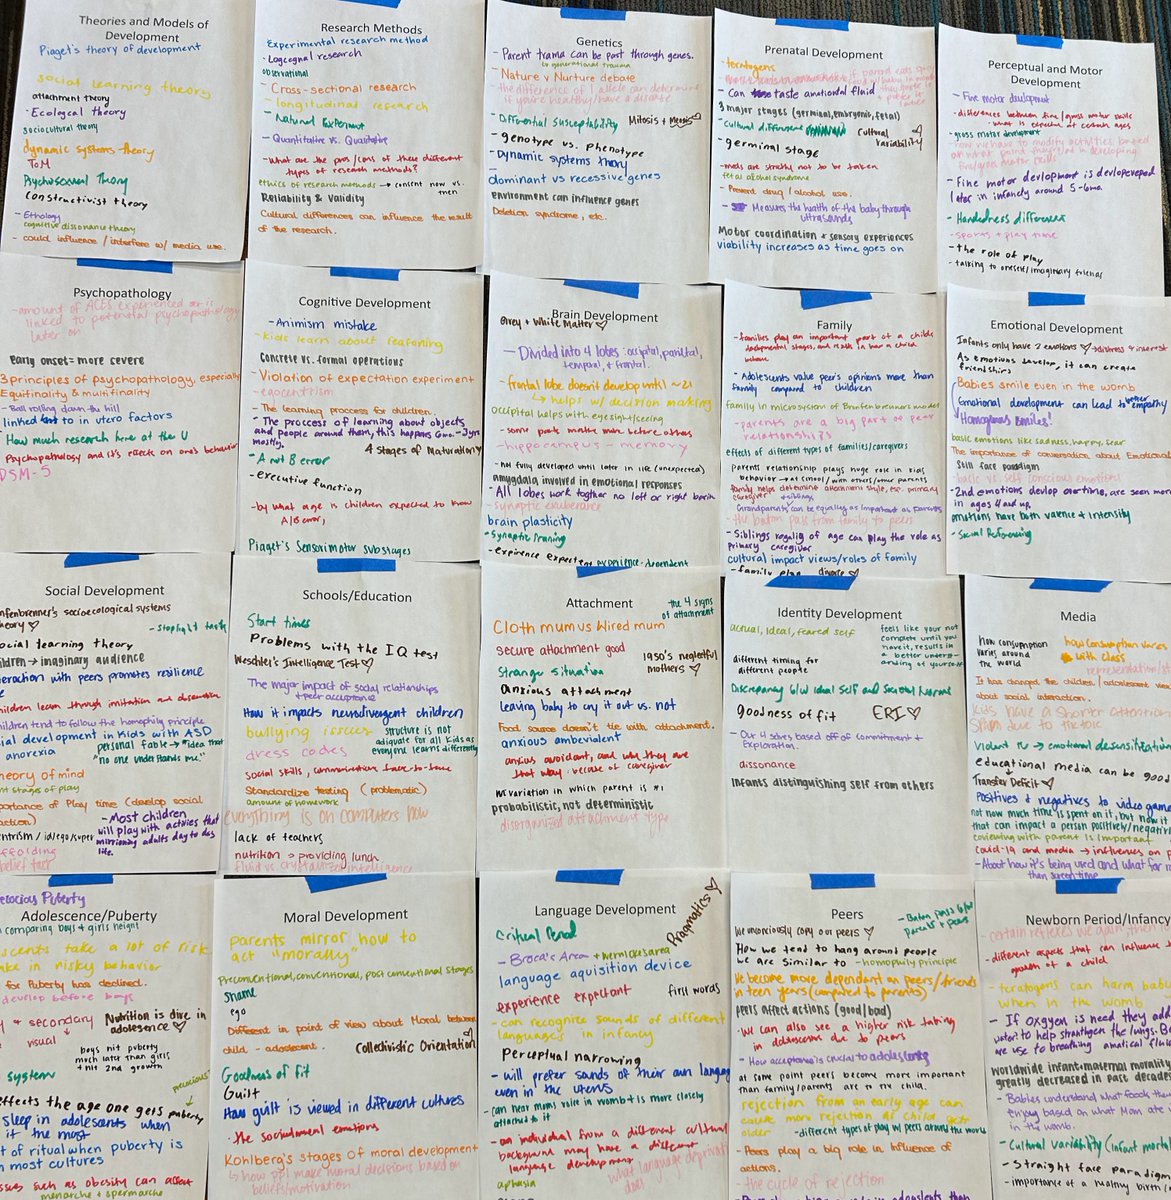 Theories and Models of
Development
Piaget's theory of development
social learning theory
attachment theory
- Ecological theory
sociocultural theory
dynamic systems theory
ToM
Psychosexual Theory
Constructivist theory
- Ethology
cognitive dissonance theory
- could influence / interfere w/ media use.
Research Methods
Experimental research method
observational
- Cross-sectional research
- longitudinal research
- Natural Experiment
- Quantitative vs. Qualitative
- what are the pros/cons of these different
types of research methods?
ethics of research methods → consent now vs.
then
Reliability & Validity
Cultural differences can influence the result
of the research.
Genetics
- Parent trama can be past through genes.
↳ generational trauma
- Nature v Nurture debate
- the difference of 1 allele can determine
if you're healthy/have a disease
- Differential Susceptability
Mitosis + Meosis ♡
- genotype vs. phenotype
- Dynamic systems theory
- dominant vs recessive genes
environment can influence genes
Deletion syndrome, etc.
Prenatal Development
- teratogens
- Can taste amational fluid
3 major stages (germinal, embryonic, fetal)
- Cultural difference
Cultural
Variability ♡
- germinal stage
- meds are strictly not to be taken
fetal alcohol syndrome
- Prevent drug / alcohol use.
- Measures the health of the baby through
ultrasounds
Motor coordination + sensory experiences
viability increases as time goes on
Perceptual and Motor
Development
- Fine motor devlopment
- differences between fine/gross motor skills
- what is expected at certain ages
gross motor development
- how we have to modify activities based
on what point they're in in developing
fine/gross motor skills
- Fine motor devlopment is devlopeveped
later in infancty around 5-6mo.
- Handedness differences
- sports + play time
- the role of play
- talking to oneself/imaginary friends
Psychopathology
- amount of ACEs experienced is
linked to potential psychopathology
later on
Early onset = more severe
3 principles of psychopathology, especially
Equifinality & multifinality
- Ball rolling down the hill
linked to in utero factors
- How much research here at the U
Psychopathology and it's effects on one's behavior
DSM-5
Cognitive Development
- Animism mistake
- kids learn about reasoning
Concrete vs. formal operations
- Violation of expectation experiment
- egocentrism
- The learning proccess for children.
- The proccess of learning about objects
and people around them, this happens 6mo. - 3yrs
mostly.
4 stages of Maturation
- A not B error
- executive function
- by what age is children expected to know
A/B error,
Piaget's Sensorimotor Substages
Brain Development
Grey + White Matter ♡
- Divided into 4 lobes: occipital, parietal,
temporal, + frontal.
- frontal lobe doesn't develop until ~21
↳ helps w/ decision making
occipital helps with eyesight/seeing
- some parts mature much before others
- hippocampus - memory
- not fully developed until later in life (unexpected)
amygdala involved in emotional responses
- All lobes work together no left or right brain
- synaptic exuberance
brain plasticity
- Synaptic Pruning
- expirence expectent experience-dependent
Family
- families play an important part of a childs
- Adolescents value peer's opinions more than
family compared to children
family in microsystem of Bronfenbrenners model
- parents are a big part of peer
relationships
effects of different types of families/caregivers
Parents relationship plays huge role in kids
behavior → at school/with others/other parents
family helps determine attachment style, esp. primary
caregiver
Grandparents can be equally as important as parents
- the baton pass from family to peers
- Siblings regarlig of age can play the role as
primary caregiver
cultural impact views/roles of family
- family plan
divorce ♡
Emotional Development
Infants only have 2 emotions ♡ → distress & interest
As emotions develop, it can create
friendships
Babies smile even in the womb
Emotional development can lead to better empathy
Homogenous Smiles!
basic emotions like sadness, happy, fear
The importance of conversation about Emotional
Still face paradigm
- basic vs self conscious emotions
- 2nd emotions devlop overtime, are seen more
in ages 4 and up.
emotions have both valence & intensity
- Social Referencing
Social Development
nfenbrenner's socioecological systems
theory ♡
- stoplight task
ocial learning theory
ildren → imaginary audience
eraction with peers promotes resilience
ildren learn through imitation and observation
children tend to follow the homophily principle
ial development in kids with ASD
anorexia
personal fable → "idea that
"no one understands me."
heory of mind
nt stages of play
portance of Play time (develop social
action)
- Most children
will play with activies that
mirrioning adults day to day
life.
entrism / id/ego/super
ffolding
belief task
Schools/Education
Start times
Problems with the IQ test
Weschler's Intelligence Test ♡
- The major impact of social relationships
+ peer acceptance
How it impacts neurodivergent children
bullying issues
structure is not
adiquate for all kids as
everyone learns differently
dress codes
social skills, communication face-to-face
Standardize testing (problematic)
amount of homework
everything is on computers now
lack of teachers
nutrition → providing lunch
fluid vs. crystallized intelligence
Attachment
the 4 signs
of attachment
Cloth mum vs Wired mum
secure attachment good
1950's neglectful
mothers ♡
Strange situation
Anxious attachment
leaving baby to cry it out vs. not
Food source doesn't tie with attachment.
anxious ambevilent
anxius avoidant, and why they are
that way: because of caregiver
variation in which parent is #1
probabilistic, not deterministic
disorganized attachment type
Identity Development
actual, ideal, feared self
feels like your not
complete until you
have it, results in
a better unders-
anding of yourself
different timing for
different people
Discrepancy b/w ideal self and Societal Norms
goodness of fit
ERI ♡
- Our 4 selves based off of commitment +
Exploration.
dissonance
Infants distinguishing self from others
Media
how consumption
varies around
the world
how consumption varies
with class
representation/s
It has changed the children/adolescent view
about social interaction.
kids have a shorter attention
span due to tiktok
Violent tv → emotional desensitization
educational media can be good
Transfer Deficit ♡
Positives & negatives to video game
not how much time is spent on it, but how it
that can impact a person positively/negativ
coviewing with parent is important
Covid-19 and media → influences on
- About how it's being used and what for ra
than screen time
Precocious Puberty
Adolescence/Puberty
comparing boys & girls height
scents take a lot of risk
ake in risky behavior
for Puberty has declined.
develop before boys
y & secondary
Nutrition is dire in
adolesence ♡
visual
boys hit puberty
much later than girls
+ hit 2nd growth
system
precocious
effects the age one gets puberty
sleep in adolesents when
it the most
t of ritual when puberty is
n most cultures
ssues such as obesity can affect
menarche + spermarche
Moral Development
Parents mirror how to
act "morally"
Preconventional, conventional, post conventional stages
Shame
ego
Different in point of view about Moral between
child - adolescent.
Collectivistic Orientation
Goodness of Fit
Guilt
How guilt is viewed in different cultures
- the sociomoral emotions
Kohlberg's stages of moral development
↳ how ppl make moral decisions based on
beliefs/motivation
Language Development
Pragmatics ♡
Critical Period
- Broca's Area + Wernickes area
language aquisition device
experience expectant
first words
- can recognize sounds of different
languages in infancy
Perceptual narrowing
- will prefer sounds of their own language
even in the uterus
- can hear moms voice in womb + is more closely
attached to it
- an individual from a different cultural
background may have a different
language development
what language deprivation
does
aphasia
Peers
- Baton pass b/w
parents + peers
We unconciously copy our peers ♡
How we tend to hang around people
we are similar to
- homophily principle
We become more dependent on peers/friends
in teen years (compared to parents)
peers affect actions (good/bad)
- We can also see a higher risk taking
in adolescents due to peers
- How acceptance is crucial to adolescents
at some point peers become more important
than family/parents are to the child.
rejection from an early age can
cause more rejection as child gets
older
- different types of play w/ peers around the world
- Peers play a big role in influence of
actions.
- the cycle of rejection
Newborn Period/Infancy
- different aspects that can influence
growth of a child
- teratogens can harm baby
when in the womb
- If oxgyen is need they add
water to help strantigen the lungs. Be
are use to breathing amatical fluid
worldwide infant + maternal mortality
greatly decreased in past decades
- Babies understand what foods they
enjoy based on what Mom ate
in the womb.
- Cultural variability (infant mortal
- Straight face paradigm
- importance of a healthy birth/